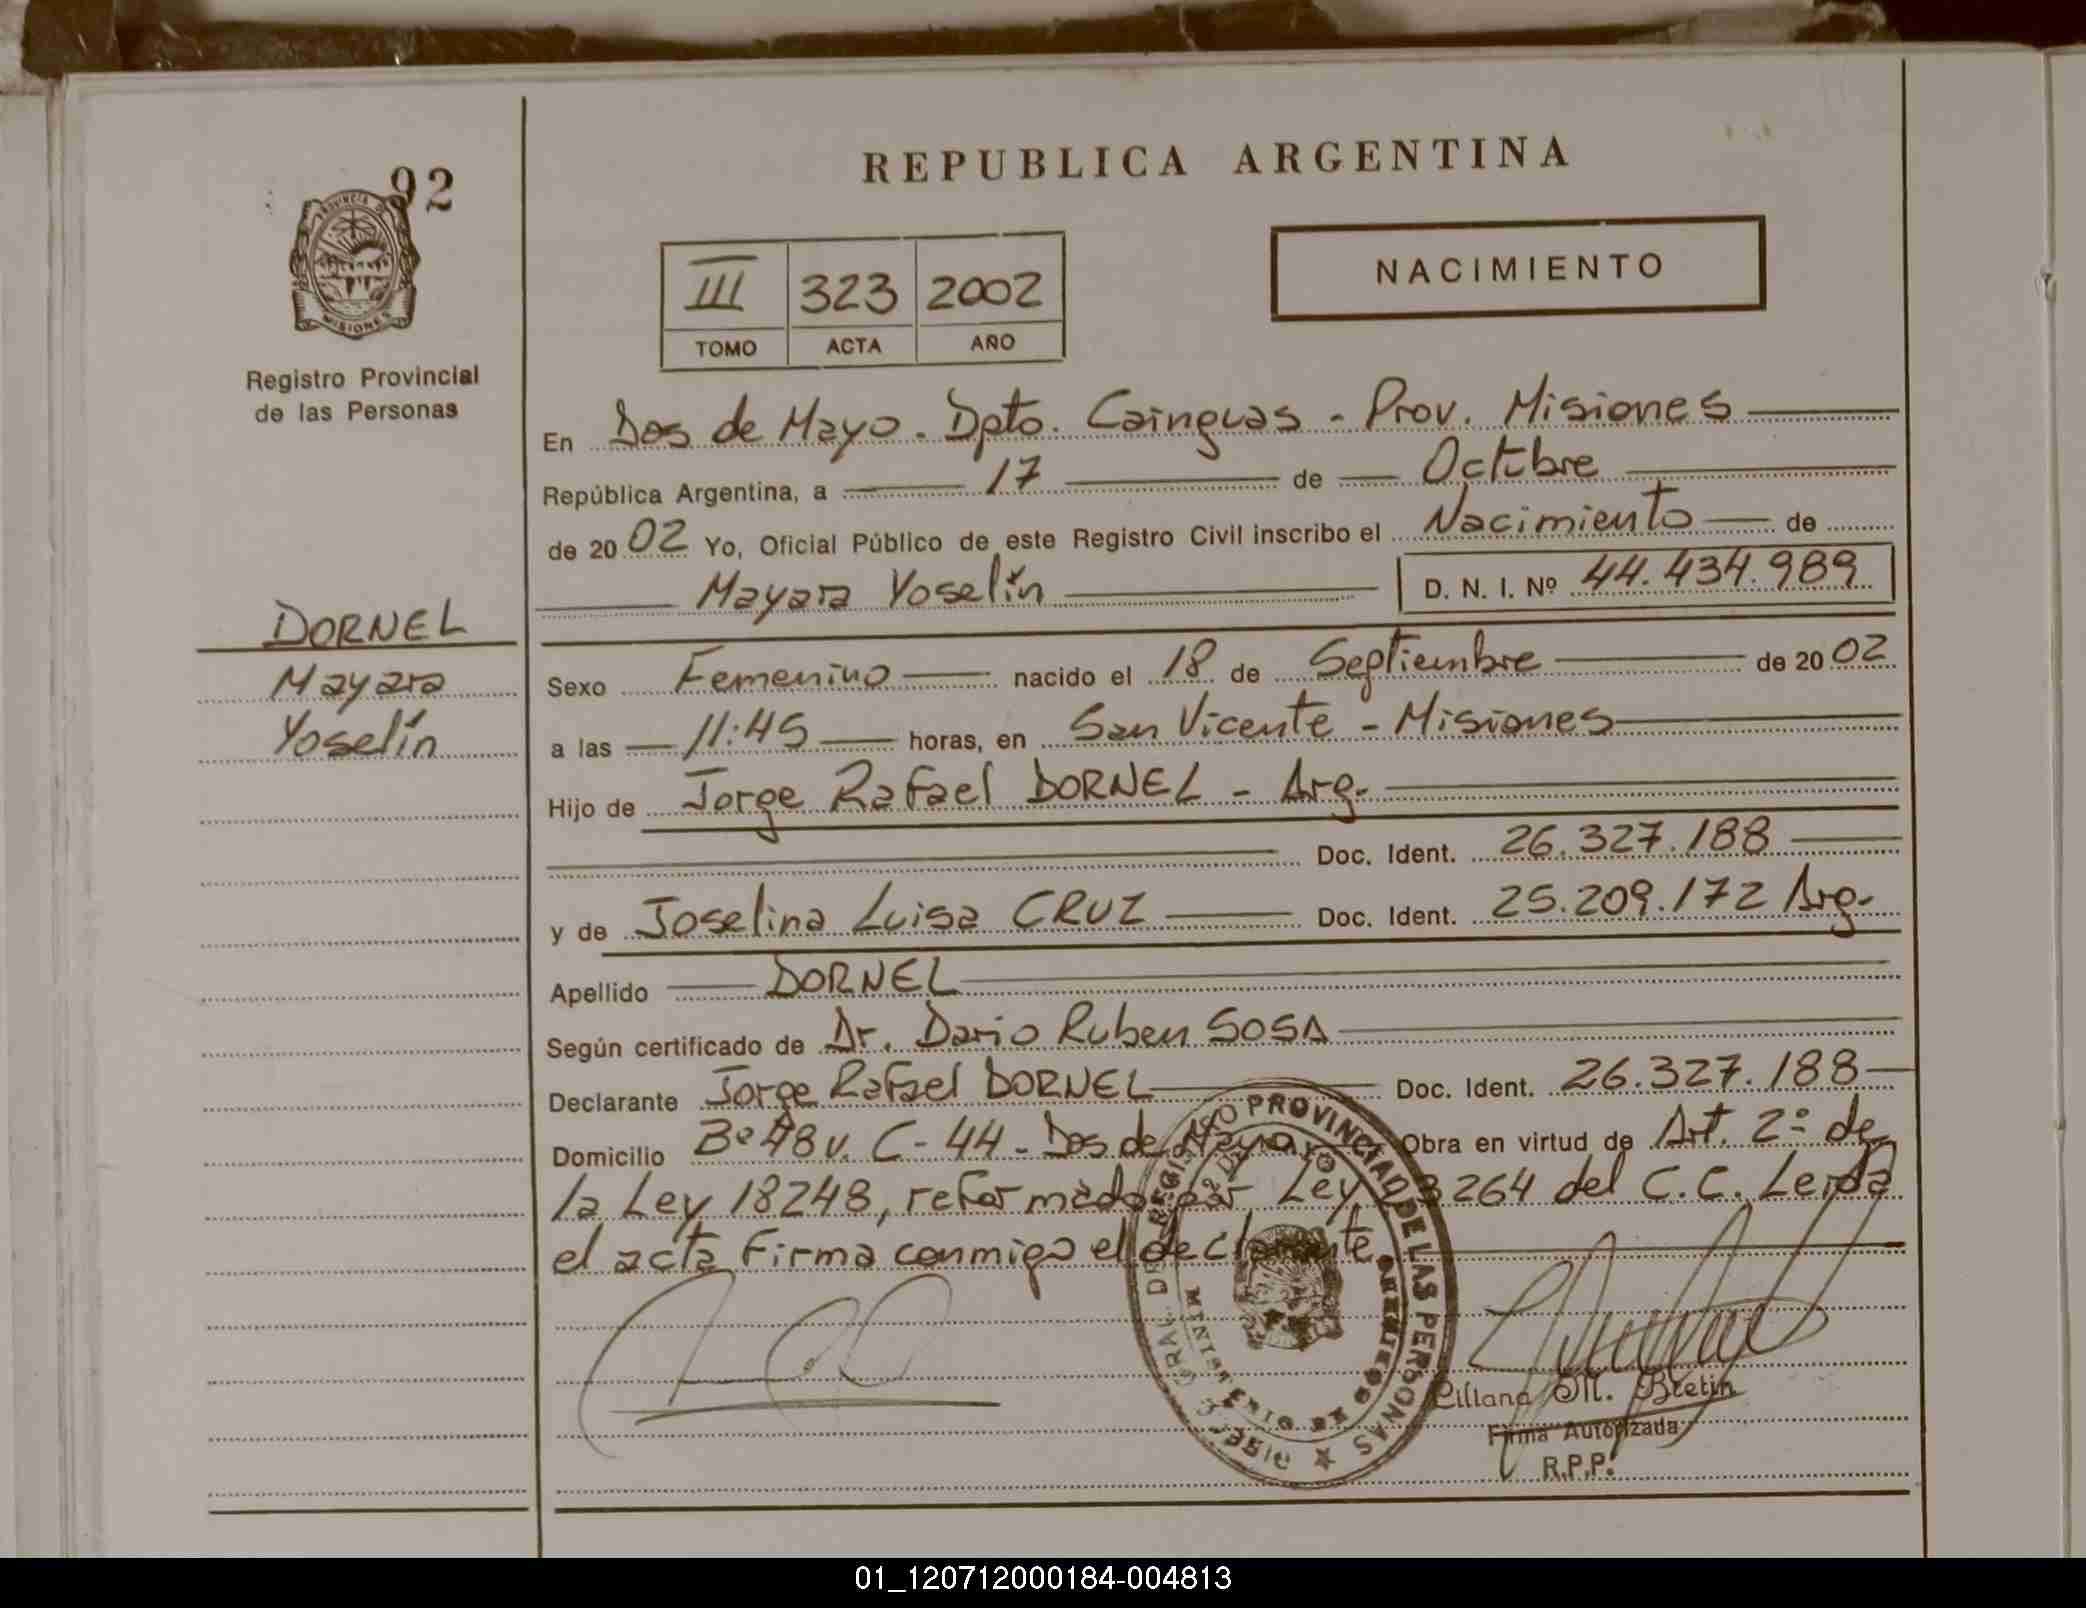 92
PROVINCIA DE
MISIONES
Registro Provincial
de las Personas
DORNEL
Mayara
Yoselín
REPUBLICA ARGENTINA
III 323 2002
TOMO ACTA AÑO
NACIMIENTO
En Dos de Mayo. Dpto. Cainguas - Prov. Misiones
República Argentina, a 17 de Octubre
de 2002 Yo, Oficial Público de este Registro Civil inscribo el Nacimiento de
Mayara Yoselín D. N. I. Nº 44.434.989
Sexo Femenino nacido el 18 de Septiembre de 2002
a las 11:45 horas, en San Vicente - Misiones
Hijo de Jorge Rafael DORNEL - Arg.
Doc. Ident. 26.327.188
y de Joselina Luisa CRUZ Doc. Ident. 25.209.172 Arg.
Apellido DORNEL
Según certificado de Dr. Dario Ruben SOSA
Declarante Jorge Rafael DORNEL Doc. Ident. 26.327.188
Domicilio Bº 48 v. C-44 - Dos de Mayo Obra en virtud de Art. 2º de
la Ley 18248, reformado por Ley 3264 del C.C. Leída
el acta firma conmigo el declarante
PROVINCIAL DE LAS PERSONAS
MISIONES
Liliana M. Bretin
Firma Autorizada
R.P.P.
01_120712000184-004813